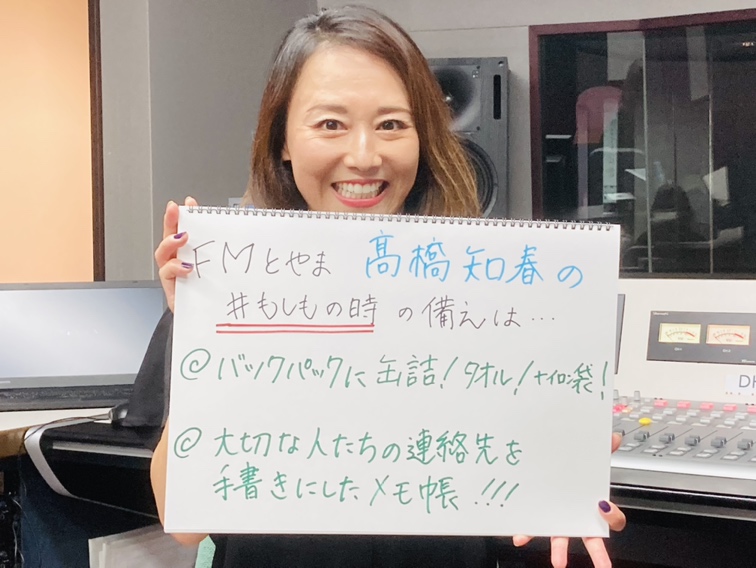 FMとやま 髙橋知春の
#もしもの時の備えは…
@ バックパックに缶詰!タオル!ナイロン袋!
@ 大切な人たちの連絡先を
手書きにしたメモ帳!!!